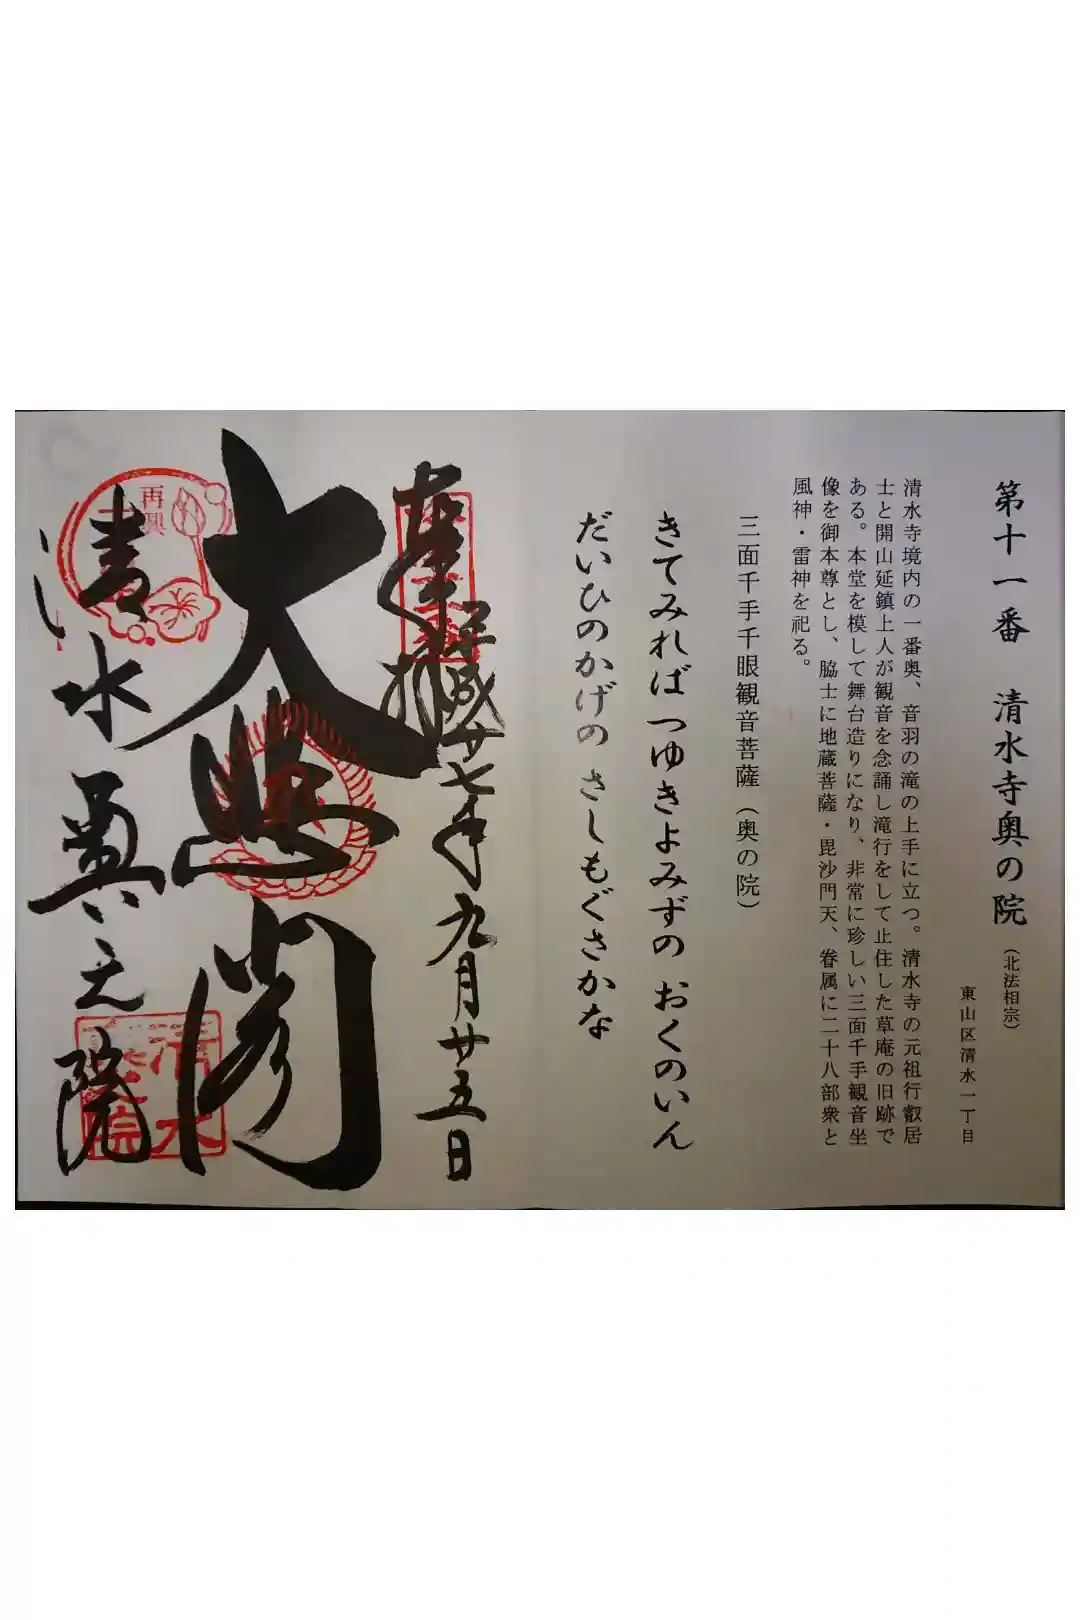 第十一番 清水寺奥の院(北法相宗)
東山区清水一丁目
清水寺境内の一番奥、音羽の滝の上手に立つ。清水寺の元祖行叡居
士と開山延鎮上人が観音を念誦し滝行をして止住した草庵の旧跡で
ある。本堂を模して舞台造りになり、非常に珍しい三面千手観音坐
像を御本尊とし、脇士に地蔵菩薩・毘沙門天、眷属に二十八部衆と
風神・雷神を祀る。
三面千手千眼観音菩薩(奥の院)
きてみれば つゆきよみずの おくのいん
だいひのかげの さしもぐさかな
奉拝
平成廿七年九月廿五日
大悲閣
再興
清水奥之院